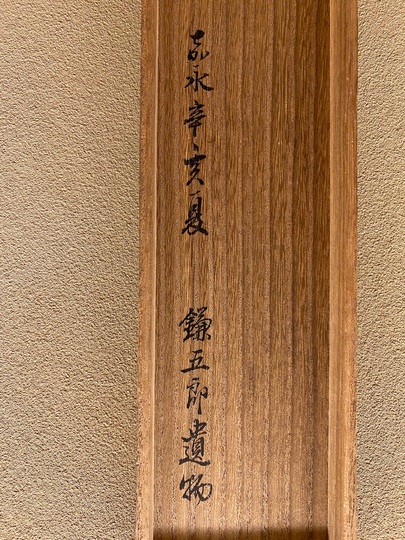 嘉永辛亥夏　鎌五郎遺物